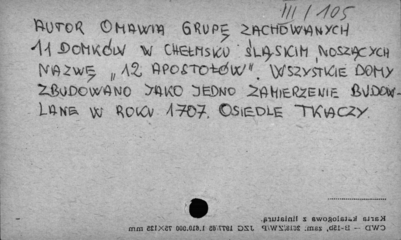 III/105
AUTOR OMAWIA GRUPĘ ZACHOWANYCH
11 DOMKÓW W CHEŁMSKU ŚLĄSKIM, NOSZĄCYCH
NAZWĘ „12 APOSTOŁÓW". WSZYSTKIE DOMY
ZBUDOWANO JAKO JEDNO ZAMIERZENIE BUDOW-
LANE W ROKU 1707. OSIEDLE TKACZY.
Karta katalogowa z liniaturą.
CWD — D-15b, zam. 3018/Z/W/P JZG 1977.65 1.610.000 75×125 mm